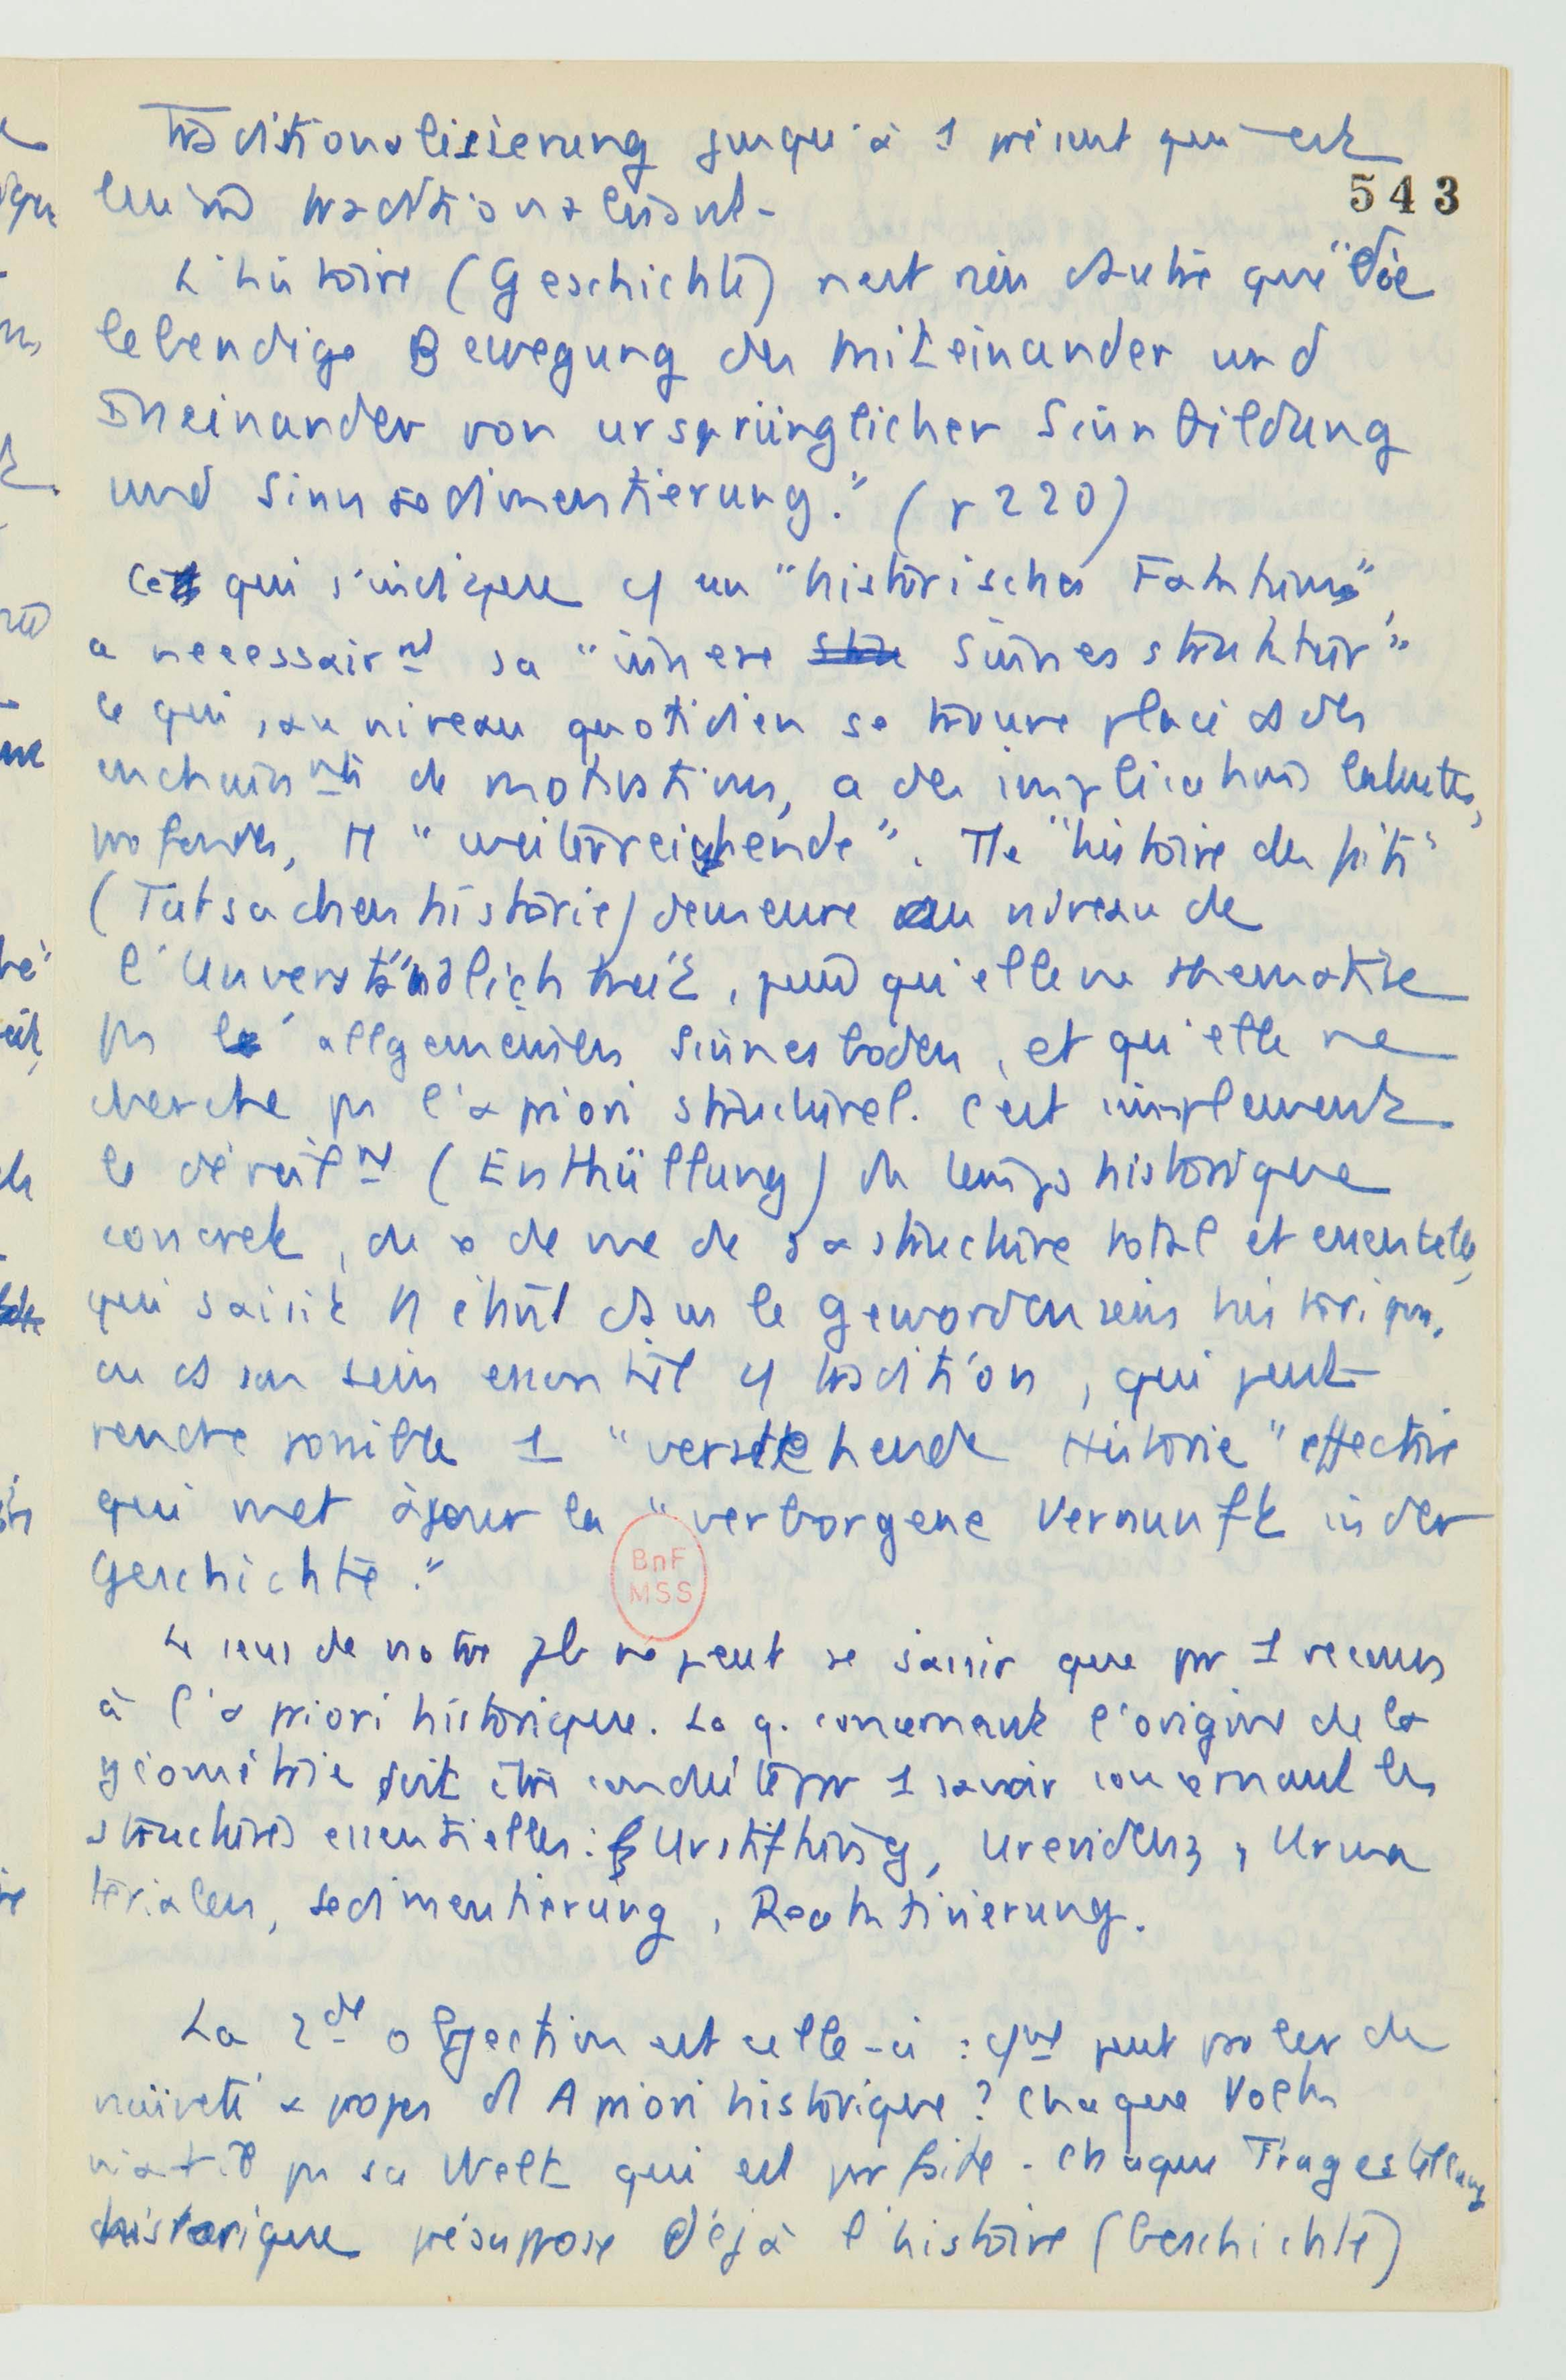 Traditionalisierung jusqu'à 1 présent qui est
543
lui-m̂ traditionalisant.
L'histoire (Geschichte) n'est rien d'autre que "die
lebendige Bewegung des miteinander und
Ineinander von ursprünglicher Sinnbildung
und Sinnsedimentierung." (p 220)
Ce qui s'indique c/ un "historisches Faktum",
a necessairnt sa "innere Sinnesstruktur"
ce qui, au niveau quotidien se trouve placé ds des
enchaînnts de motivations, a des implications latentes,
profondes, et "weiterreichende". Tte "histoire des faits"
(Tatsachenhistorie) demeure au niveau de
l'Unverständlichkeit, puisqu'elle ne thematise
pas l'allgemeinen Sinnesboden, et qu'elle ne
cherche pas l'a priori structurel. C'est simplement
le dévoilnt (Enthüllung) du temps historique
concret, du de vue de sa structure total et essentielle,
qui saisit l'être ds le Gewordensein historique,
ou ds son sein essentiel c/ tradition, qui peut
rendre possible 1 "verstehende Historie" effective
qui met à jour la "verborgene Vernunft in der
Geschichte."
BnF
MSS
Le sens de notre pb ne peut se saisir que par 1 recours
à l'a priori historique. La q. concernant l'origine de la
géométrie doit être conduite par 1 savoir concernant les
structures essentielles: Urstiftung, Urevidenz, Urma
terialen, sedimentierung, Reaktivierung.
La 2de objection est celle-ci : cmt peut parler de
naïveté à propos d'A priori historique? Chaque Volk
pas sa Welt qui est parfaite. Chaque Fragestellung
historique présuppose déjà l'histoire (Geschichte)